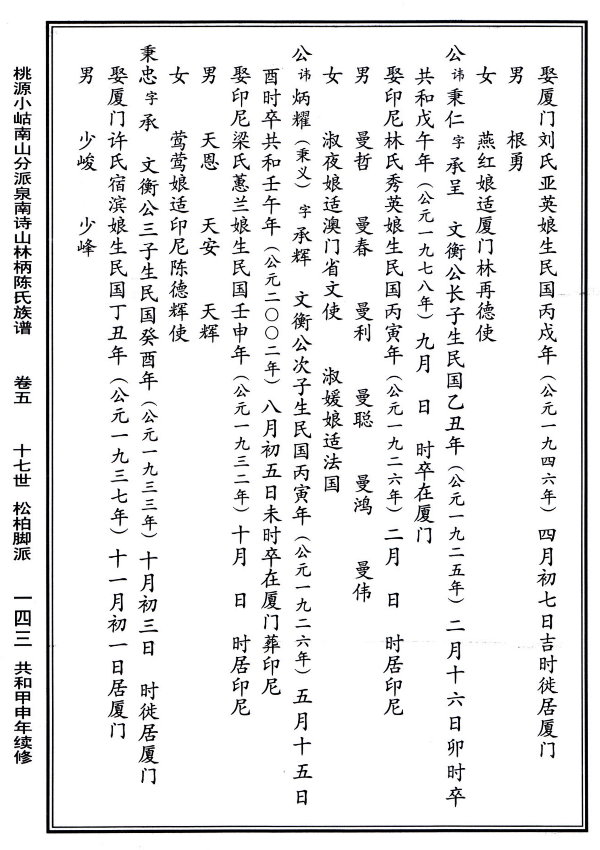 娶厦门刘氏亚英娘生民国丙戌年（公元一九四六年）四月初七日吉时徙居厦门
男　根勇
女　燕红娘适厦门林再德使
公讳秉仁字承呈　文衡公长子生民国乙丑年（公元一九二五年）二月十六日卯时卒
共和戊午年（公元一九七八年）九月　日　时卒在厦门
娶印尼林氏秀英娘生民国丙寅年（公元一九二六年）二月　日　时居印尼
男　曼哲　曼春　曼利　曼聪　曼鸿　曼伟
女　淑夜娘适澳门省文使　淑媛娘适法国
公讳炳耀（秉义）字承辉　文衡公次子生民国丙寅年（公元一九二六年）五月十五日
酉时卒共和壬午年（公元二〇〇二年）八月初五日未时卒在厦门葬印尼
娶印尼梁氏蕙兰娘生民国壬申年（公元一九三二年）十月　日　时居印尼
男　天恩　天安　天辉
女　莺莺娘适印尼陈德辉使
秉忠字承　文衡公三子生民国癸酉年（公元一九三三年）十月初三日　时徙居厦门
娶厦门许氏宿滨娘生民国丁丑年（公元一九三七年）十一月初一日居厦门
男　少峻　少峰
桃源小岵南山分派泉南诗山林柄陈氏族谱　卷五　十七世　松柏脚派　一四三　共和甲申年续修